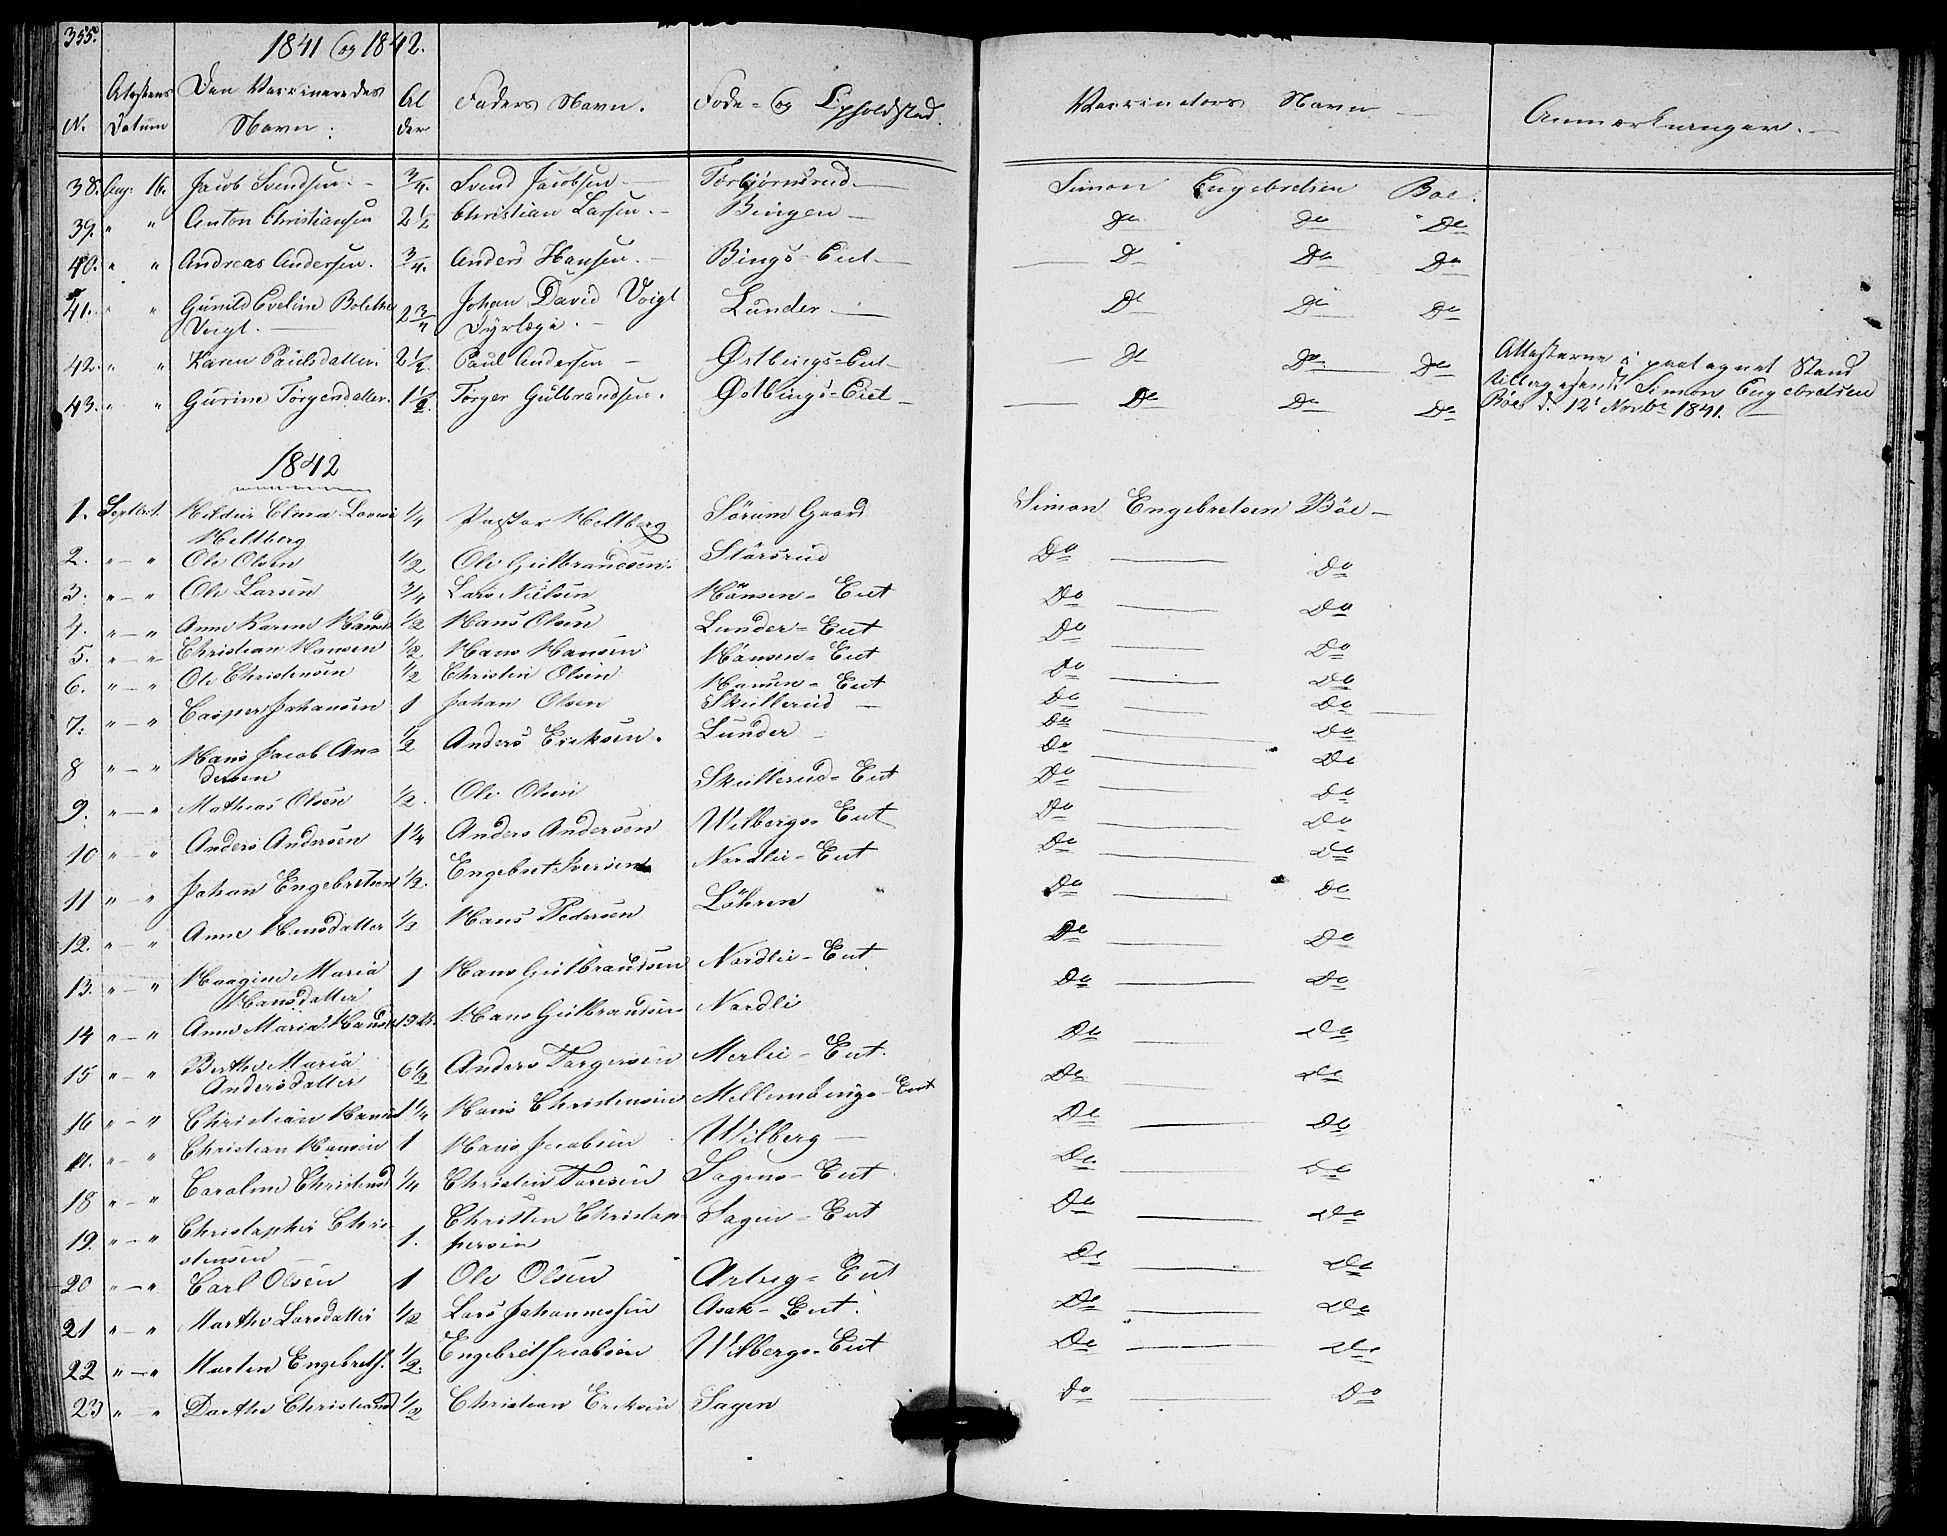 355.
1841 og 1842.
N. | Attestens Datum | Den Vaccineredes Navn: | Alder | Faders Navn. | Føde- og Opholdsted. | Vaccinators Navn | Anmærkninger.
38. Aug. 16. Jacob Svendsen. 3/4. Svend Jacobsen Torbjørnsrud. Simon Engebretsen Bøe.
39. " " Anton Christiansen 2 1/2 Christian Larsen. Bingen Do Do Do
40. " " Andreas Andersen. 3/4. Anders Hansen. Bings-Eiet D Do Do
41. " " Gunild Eveline Bolethe Voigt. 2 3/4 Johan David Voigt Dyrlæge. Lunder Do Do Do
42. " " Karen Paulsdatter. 2 1/2. Paul Andersen Østbings-Eiet Do Do Do
Attesterne i paategnet Stand
43. " " Gurine Torgersdatter. 1 1/2. Torger Gulbrandsen. Østbings-Eiet Do Do Do
tilbagesendt Simon Engebretsen
Bøe d. 12t Novbr 1841.
1842
1. Septbr 1. Hildur Clara Lovise Heltberg 1/4 Pastor Heltberg Sørum Gaard Simon Engebretsen Böe
2. " " Ole Olsen 1/2 Ole Gulbrandsen. Storsrud Do Do
3. " " Ole Larsen 3/4 Lars Nielsen Hansen-Eiet Do Do
4. " " Anne Karine Hansd 1/2 Hans Olsen Lunder-Eiet Do Do
5. " " Christian Hansen 1/2 Hans Hansen Hansen-Eiet Do Do
6. " " Ole Christensen 1/2 Christen Olsen Hansen-Eiet Do Do
7. " " Casper Johansen 1 Johan Olsen Skullerud Do Do
8 " " Hans Jacob Andersen 1/2 Anders Eriksen. Lunder Do Do
9. " " Mathias Olsen 1/2. Ole Olsen Skullerud-Eiet Do Do
10 " " Anders Andersen 1 1/4 Anders Andersen Wilbergs-Eiet Do Do
11 " " Johan Engebretsen 1/2. Engebret Iversen Nordlie-Eiet Do Do
12. " " Anne Hansdatter 1/2 Hans Pedersen Löhren Do Do
13. " " Haagine Maria Hansdatter 1 Hans Gulbrandsen Nordlie-Eiet Do Do
14 " " Anne Maria Hansd Hans Gulbrandsen Nordli Do Do
15 " " Berthe Maria Andersdatter 6 1/2 Anders Torgersen Merlie-Eiet. Do Do
16 " " Christian Hansen 1 1/4 Hans Christensen Mellembings-Eiet Do Do
17. " " Christian Hansen 1 Hans Jacobsen Wilberg Do Do
18 " " Caroline Christensd 1/4 Christen Toresen Sagens-Eiet Do Do
19. " " Christopher Christensen 1. Christen Christophersen Sagen-Eiet Do Do
20 " " Carl Olsen 1 Ole Olsen Arteig-Eiet Do Do
21 " " Marthe Larsdatter 1/2 Lars Johannessen Asak-Eiet. Do Do
22 " " Marten Engebrets. 1/2. Engebret Jacobsen Wilbergs-Eiet Do Do
23 " " Dorthe Christiansd 1/2 Christian Eriksen Sagen Do Do